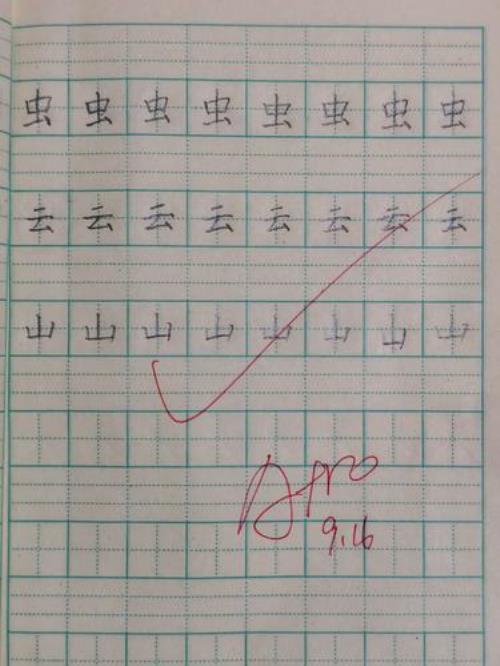 虫虫虫虫虫虫虫虫
云云云云云云云云
山山山山山山山山
9.16